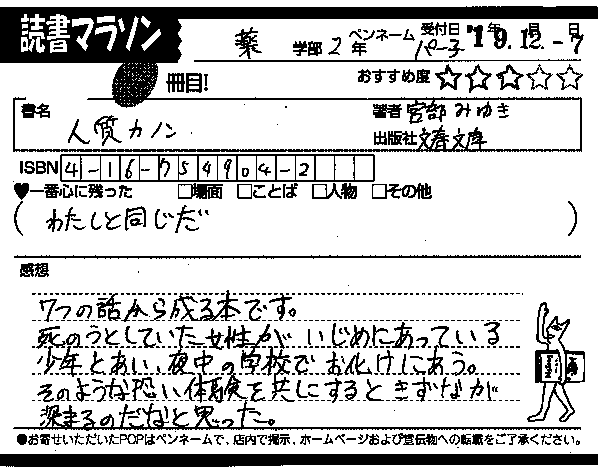 読書マラソン
冊目!
薬 学部 2 年 ペンネーム パー子 受付日 '19.12.-7 年 月 日
おすすめ度 ☆☆☆☆☆
書名 人質カノン
著者 宮部みゆき
出版社 文春文庫
ISBN 4-16-754904-2
♥一番心に残った □場面 □ことば □人物 □その他
(わたしと同じだ)
感想
7つの話から成る本です。
死のうとしていた女性が いじめにあっている
少年とあい、夜中の学校で お化けにあう。
そのような恐い体験を共にすると きずなが
深まるのだなと思った。
●お寄せいただいたPOPはペンネームで、店内で掲示、ホームページおよび宣伝物への転載をご了承ください。